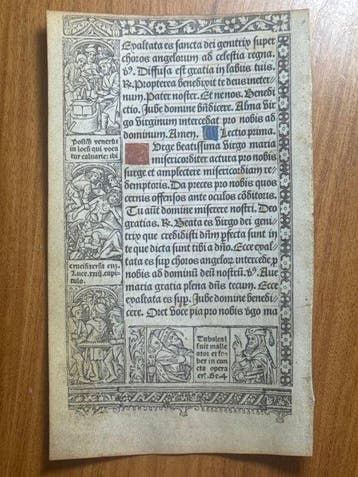 Exaltata es sancta dei genitrix super
choros angelorum ad celestia regna.
v̄. Diffusa est gratia in labiis tuis.
R. Propterea benedixit te deus in eter-
num. Pater noster. Et ne nos. Benedi
ctio. Jube domine bn̄dicere. Alma virgo
virginum intercedat pro nobis ad
dominum. Amen. Lectio prima.
Surge beatissima virgo maria
misericorditer actura pro nobis
surge et amplectere misericordiam re-
demptoris. Da preces pro nobis quos
cernis offensos ante oculos cōditoris.
Tu aūt domine miserere nostri. Deo
gratias. R. Beata es virgo dei geni-
trix que credidisti dn̄m pfecta sunt in
te que dicta sunt tibi a dn̄o. Ecce exal
tata es sup choros angelorū intercede p
nobis ad dominū deū nostrū. v̄. Aue
maria gratia plena dn̄s tecum. Ecce
exaltata es sup. Jube domine benedi
cere. Oret voce pia pro nobis virgo ma
Postq̄ venerūt
in locū qui voca
tur caluarie: ibi
crucifixerūt eū.
Luce. xxiij. capi
tulo.
Tubalcai
fuit malle
ator et fa
ber in cun
cta opera
eris. Gē. 4